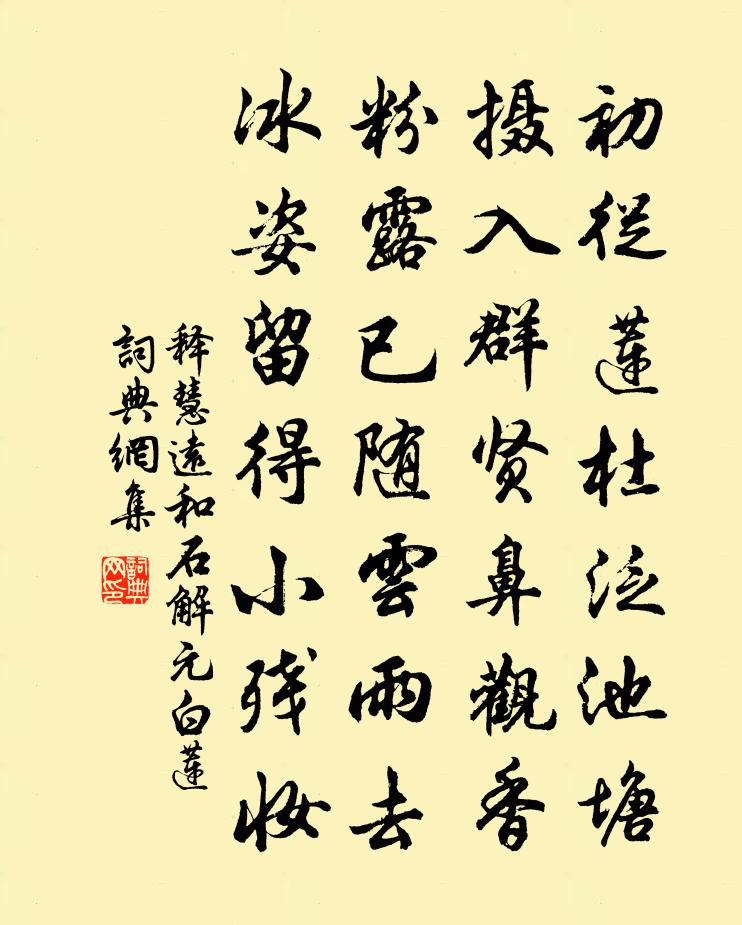 初從蓮杜泛池塘
摄入群贤鼻觀香
粉露已随雲雨去
冰姿留得小残妆
释慧遠和石解元白蓮
詞典網集
詞典网印